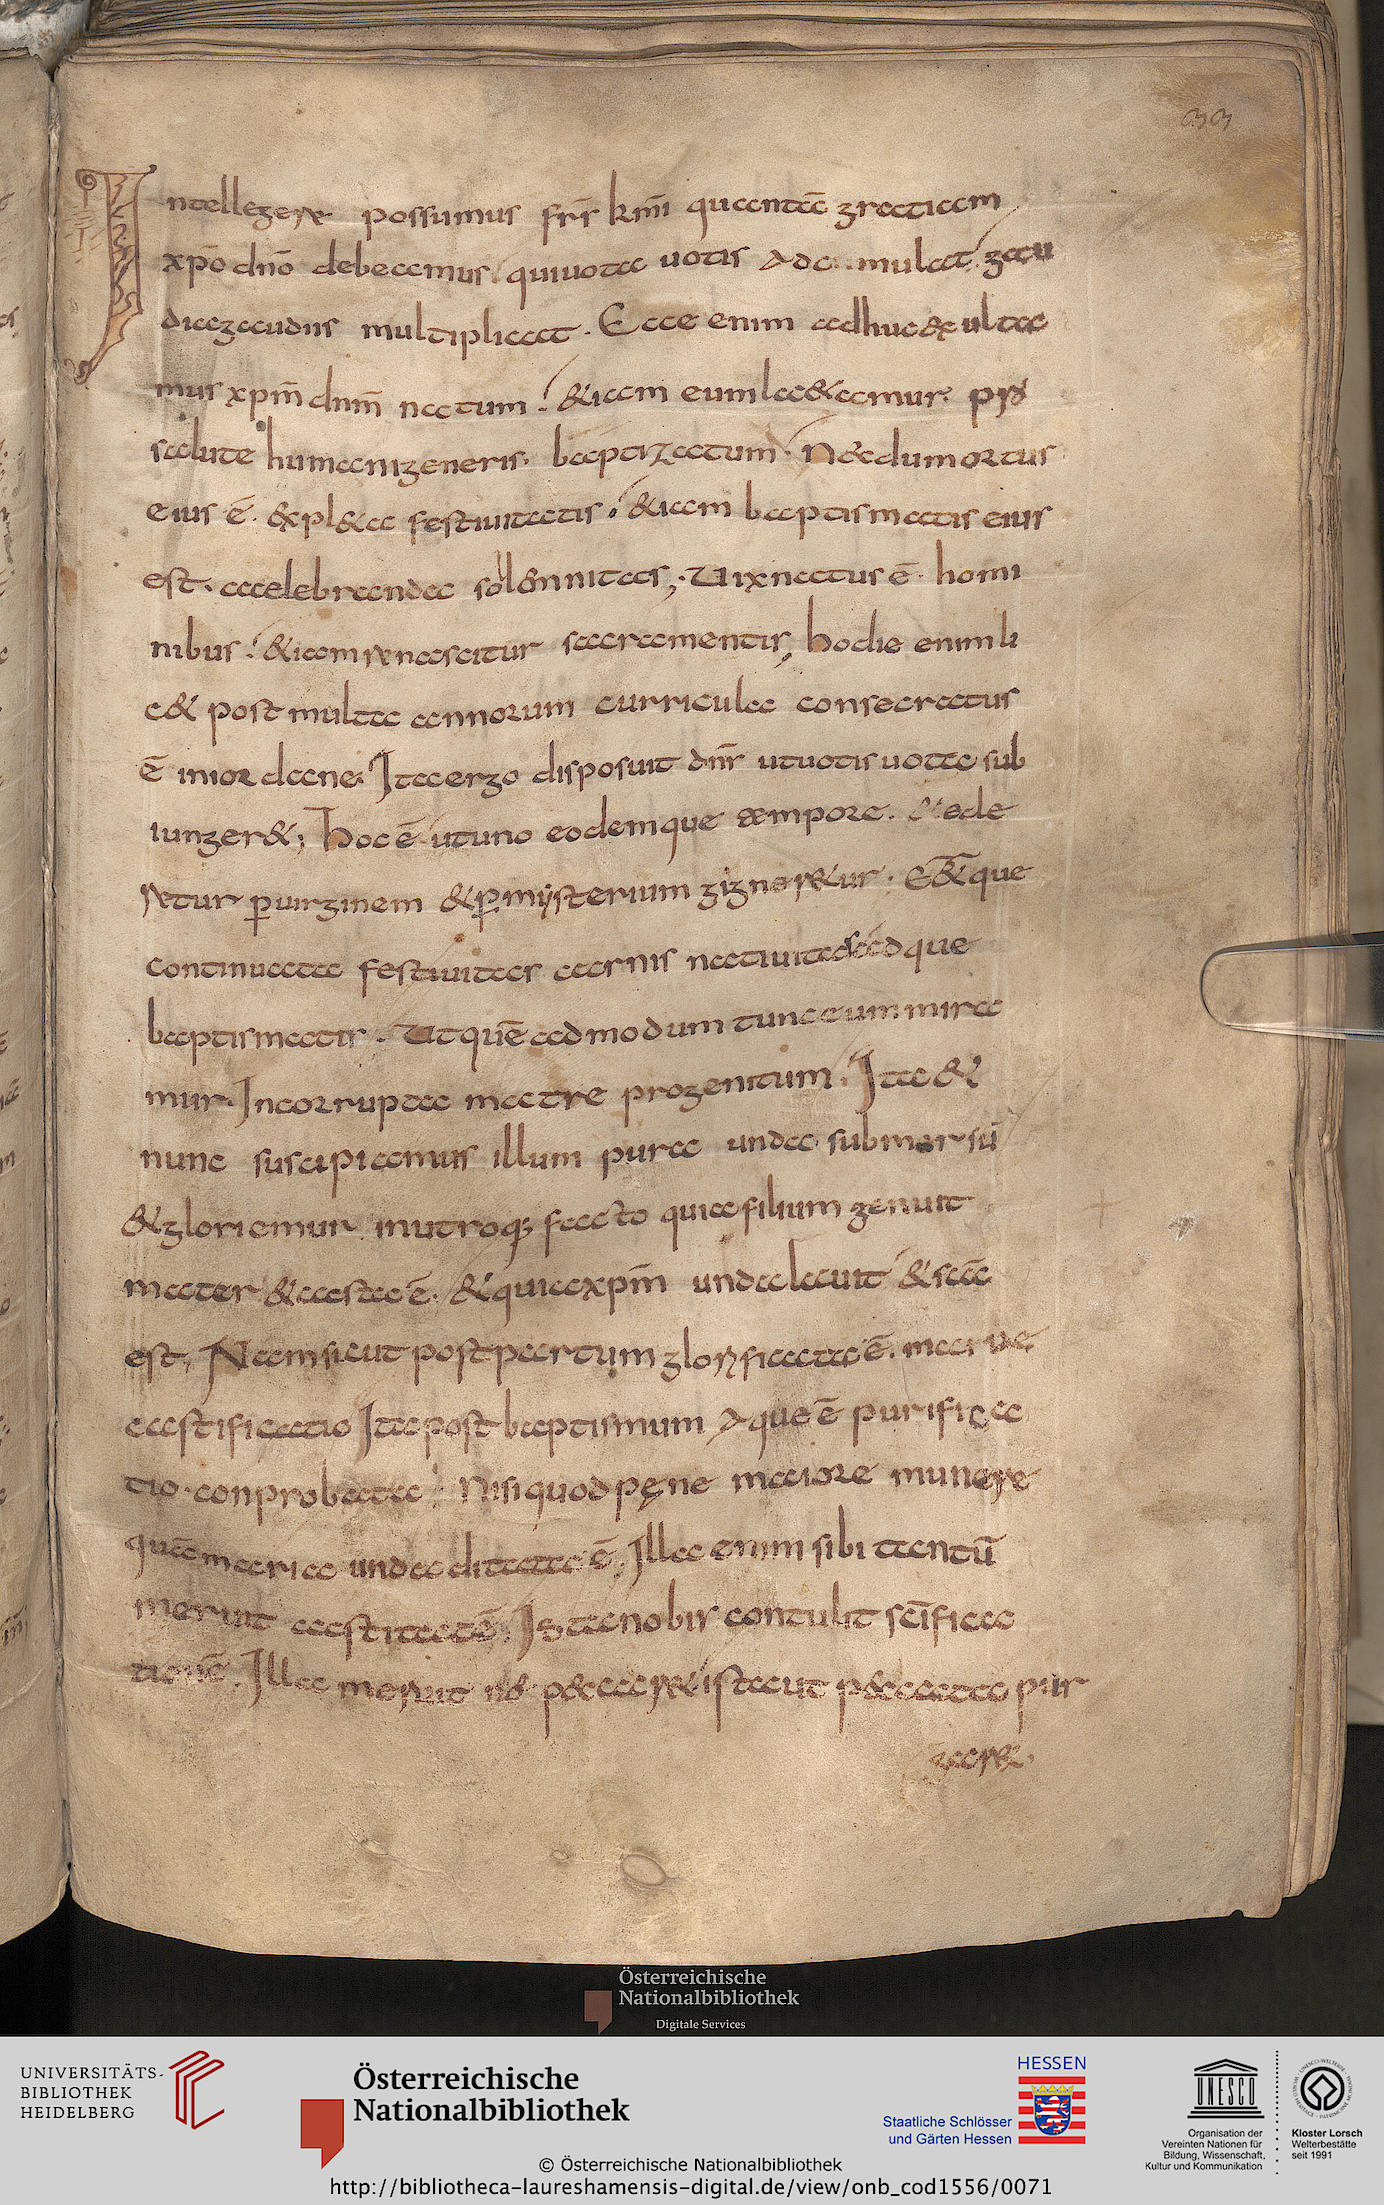 33
Intellegere possumus frr̄ km̄i quantā gratiam
xpō dnō debeamus. quiuota uotis adcumulat. gau
diagaudiis multiplicat. Ecce enim adhuc exulta
mus xpm̄ dnm̄ natum. &iam eumlaetamur. pro
salute humanigeneris. baptizatum. Necdumortus
eius ē. expl&a festiuitatis. &iam baptismatis eius
est. acelebranda solemnitas; Uixnatus ē. homi
nibus. &iamrenascitur sacramentis, hodie enimli
c& post multa annorum curricula consecratus
ē iniordane. Itaergo disposuit dn̄r utuotis uota sub
iunger&; hoc ē utuno eodemque tempore. & ede
retur puirginem &pmysterium gigner&ur. E&que
continuata festiuitas carnis natiuitas que
baptismatis. Utquē admodum tunc eum mira
mur. Incorrupta matre progenitum. Ita &
nunc suscipiamus illum pura unda submersū
&gloriemur inutroq; facto quiafilium genuit
mater &casta ē. &quiaxpm̄ unda lauit &scā
est, Namsicut postpartum glorificata ē. mariae
castificatio Ita post baptismum aque ē purifica
tio. conprobata. Nisi quod pęne maiore munere
quā maria unda ditata ē. Illa enim sibi tantū
meruit castitatē. Ista nobis contulit scīfica
tionē. Illa meruit ne peccar& ista ut peccata pur
gar&.
Österreichische
Nationalbibliothek
Digitale Services
UNIVERSITÄTS-
BIBLIOTHEK
HEIDELBERG
Österreichische
Nationalbibliothek
HESSEN
Staatliche Schlösser
und Gärten Hessen
UNESCO
Organisation der
Vereinten Nationen für
Bildung, Wissenschaft,
Kultur und Kommunikation
Kloster Lorsch
Welterbestätte
seit 1991
© Österreichische Nationalbibliothek
http://bibliotheca-laureshamensis-digital.de/view/onb_cod1556/0071